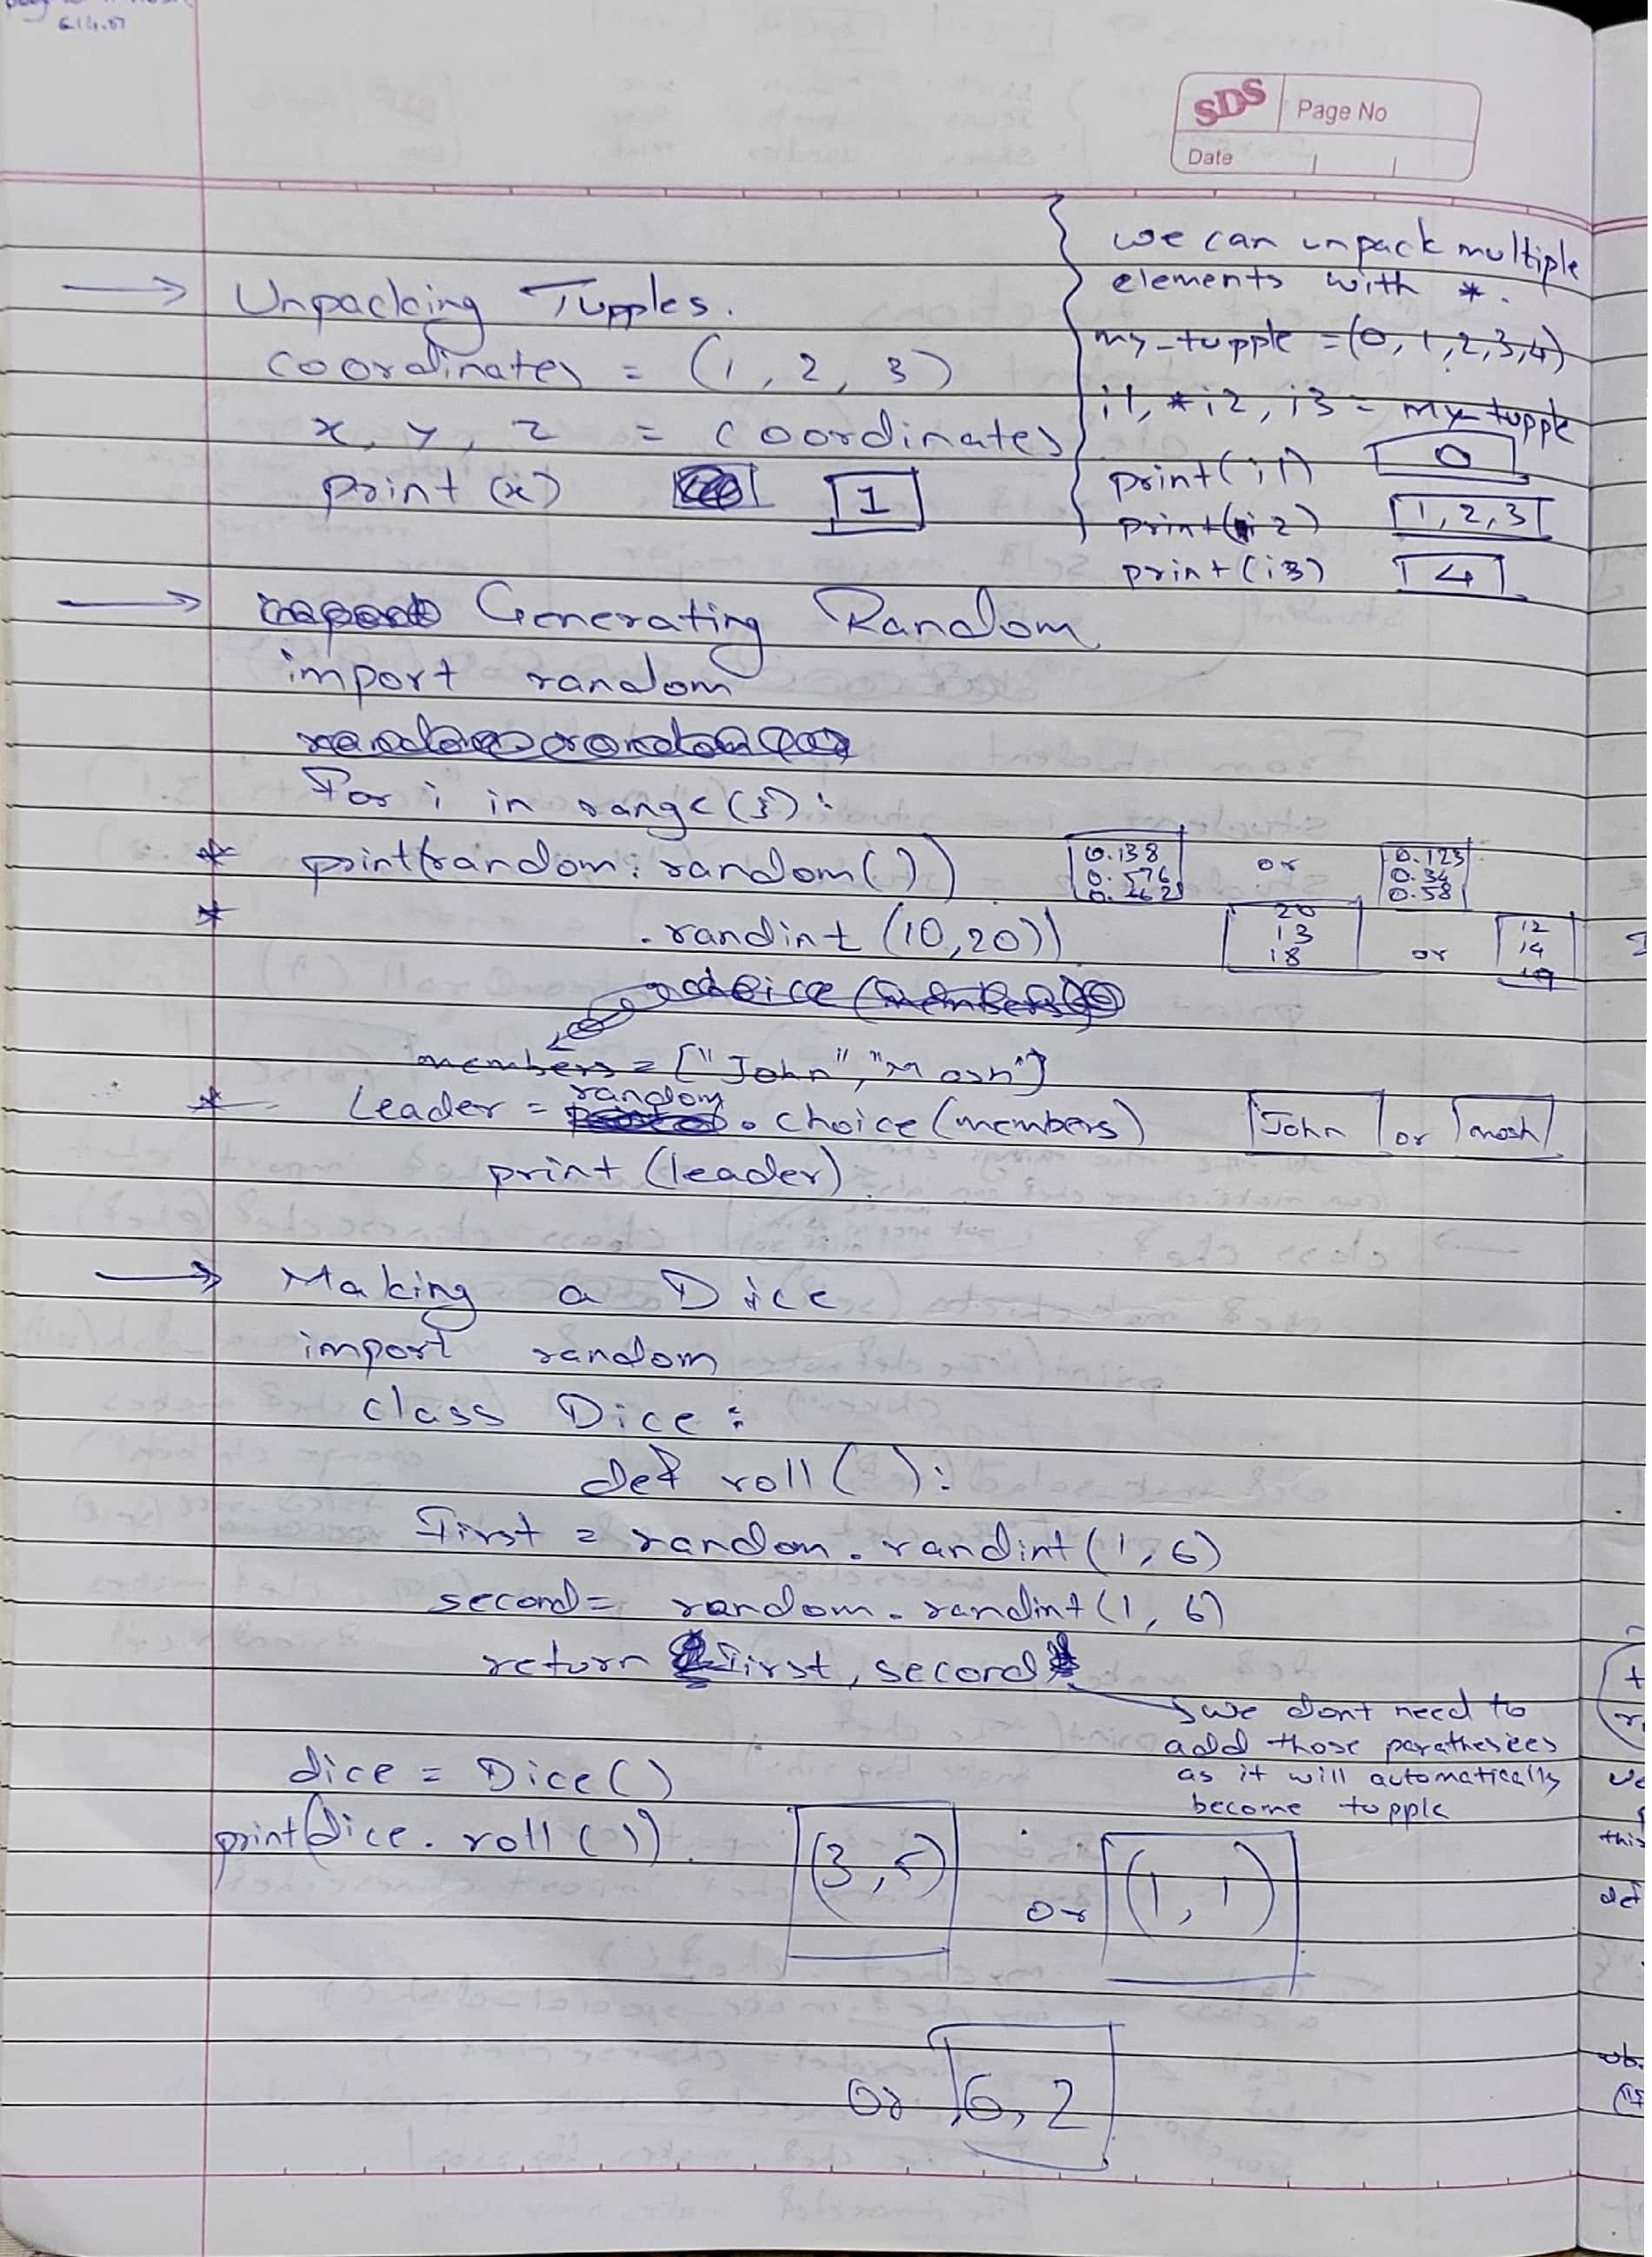 614.07
SDS Page No
Date
→ Unpacking Tupples.
coordinates = (1, 2, 3)
x, y, z = coordinates
print (x) 1
we can unpack multiple
elements with *.
my-tupple = (0, 1, 2, 3, 4)
i1, *i2, i3 = my-tupple
print(i1) 0
print(i2) 1, 2, 3
print(i3) 4
→ Generating Random
import random
For i in range(3):
* print(random. random()) 0.138 or 0.123
0.576 0.34
0.58
* .randint (10,20)) 20 12
13 or 14
18 19
members = ["John", "Mosh"]
* Leader = random . choice (members) John or mosh
print (leader)
→ Making a Dice
import random
class Dice :
def roll ( ) :
First = random . randint (1, 6)
second = random . randint (1, 6)
return first, second
→ we dont need to
add those parathesiees
as it will automatically
become topple
dice = Dice ( )
print(dice. roll ( )) (3, 5) or (1, 1)
or 6, 2